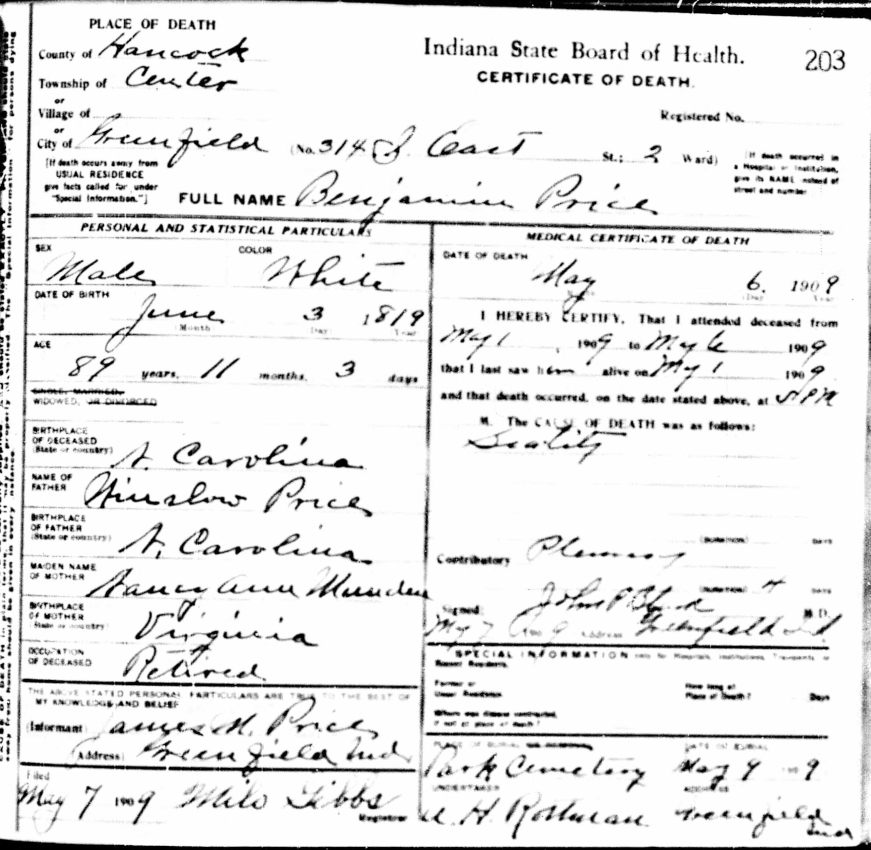 PLACE OF DEATH
County of Hancock
Township of Center
or
Village of
or
City of Greenfield (No. 314 S. East St.; 2 Ward)
Indiana State Board of Health.
203
CERTIFICATE OF DEATH.
Registered No.
[If death occurs away from
USUAL RESIDENCE
give facts called for under
"Special Information."]
[If death occurred in
a Hospital or Institution,
give its NAME instead of
street and number
FULL NAME Benjamin Price
PERSONAL AND STATISTICAL PARTICULARS
SEX
Male
COLOR
White
DATE OF BIRTH
June 3 1819
(Month (Day) Year
AGE
89 years, 11 months, 3 days
SINGLE, MARRIED,
WIDOWED, OR DIVORCED
BIRTHPLACE
OF DECEASED
(State or country)
N. Carolina
NAME OF
FATHER
Winslow Price
BIRTHPLACE
OF FATHER
(State or country)
N. Carolina
MAIDEN NAME
OF MOTHER
Nancy Ann Munden
BIRTHPLACE
OF MOTHER
(State or country)
Virginia
OCCUPATION
OF DECEASED
Retired
THE ABOVE STATED PERSONAL PARTICULARS ARE TRUE TO THE BEST OF
MY KNOWLEDGE AND BELIEF
(Informant) James M. Price
(Address) Greenfield Ind
Filed
May 7 1909 Milo Gibbs
Registrar
MEDICAL CERTIFICATE OF DEATH
DATE OF DEATH
May 6, 1909
(Day) Year
I HEREBY CERTIFY, That I attended deceased from
May 1, 1909 to May 6 1909
that I last saw him alive on May 1 1909
and that death occurred, on the date stated above, at 5 PM
M. The CAUSE OF DEATH was as follows:
Senility
(DURATION) DAYS
Contributory
(DURATION) 4 DAYS
Signed: John P Black M.D.
May 7 1909 Address Greenfield Ind
SPECIAL INFORMATION only for Hospitals, Institutions, Transients, or
Recent Residents.
Former or
Usual Residence
How long at
Place of Death? Days
Where was disease contracted,
if not at place of death?
PLACE OF BURIAL OR REMOVAL
DATE OF BURIAL
Park Cemetery May 9 1909
UNDERTAKER
ADDRESS
H. Rottman Greenfield
Ind